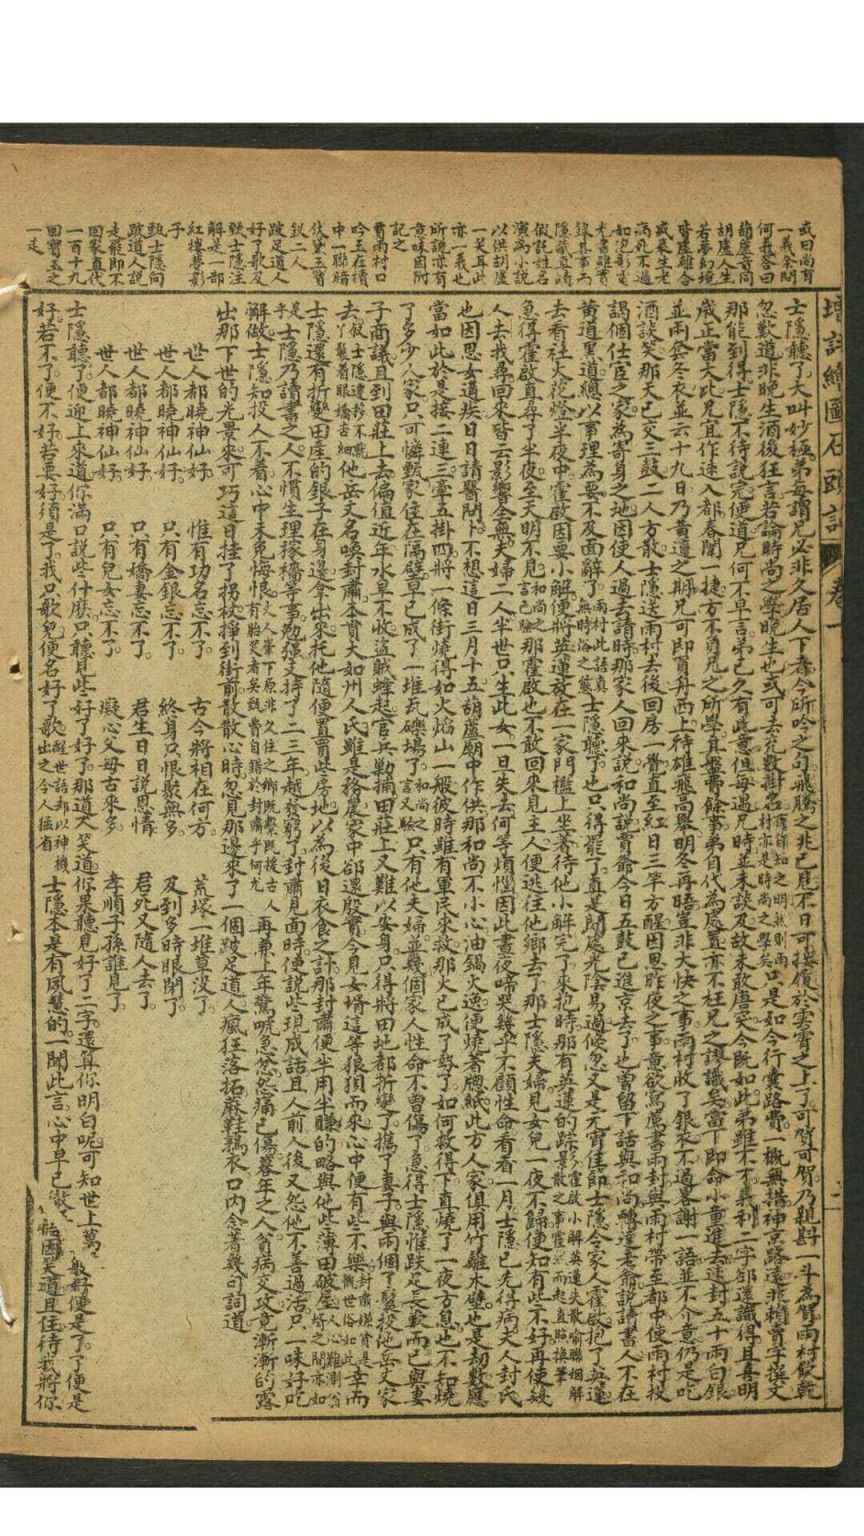 增評繪圖石頭記 卷一
或曰尚有
一義余問
何義答曰
葫蘆音同
胡虛人生
若夢幻境
皆虛離合
或衰生老
病死不過
如泡影電
光書雖實
錄其事而
隱藏真情
假託姓名
演為小說
以供胡盧
一笑耳此
亦一義也
所說亦有
意味因附
記之
賈雨村口
吟玉在櫝
中一聯暗
伏黛玉寶
釵二人
跛足道人
好了歌及
甄士隱注
解是一部
紅樓夢影
子
甄士隱向
跛道人說
走罷即不
回家直代
一百十九
回寶玉之
一走
士隱聽了大叫妙極弟每謂兄必非久居人下者今所吟之句飛騰之兆已見不日可接履於雲霄之上了可賀可賀乃親斟一斗為賀雨村飲乾
忽歎道非晚生酒後狂言若論時尚之學晚生也或可去充數掛名只是如今行囊路費一概無措神京路遠非賴賣字撰文
那能到得士隱不待說完便道兄何不早言弟已久有此意但每遇兄時並未談及故未敢唐突今既如此弟雖不才義利二字卻還識得且喜明
歲正當大比兄宜作速入都春闈一捷方不負兄之所學其盤費餘事弟自代為處置亦不枉兄之謬識矣當下即命小童進去速封五十兩白銀
並兩套冬衣並云十九日乃黃道之期兄可即買舟西上待雄飛高舉明冬再晤豈非大快之事雨村收了銀衣不過畧謝一語並不介意仍是吃
酒談笑那天已交三鼓二人方散士隱送雨村去後回房一覺直至紅日三竿方醒因思昨夜之事意欲寫薦書兩封與雨村帶至都中使雨村投
謁個仕宦之家為寄身之地因使人過去請時那家人回來說和尚說賈爺今日五鼓已進京去了也曾留下話與和尚轉達老爺說讀書人不在
黃道黑道總以事理為要不及面辭了士隱聽了也只得罷了真是閒處光陰易過倐忽又是元宵佳節士隱令家人霍啟抱了英蓮
去看社火花燈半夜中霍啟因要小解便將英蓮放在一家門檻上坐著待他小解完了來抱時那有英蓮的踪影
急得霍啟直尋了半夜至天明不見那霍啟也不敢回來見主人便逃往他鄉去了那士隱夫婦見女兒一夜不歸便知有些不好再使幾
人去找尋回來皆云影響全無夫婦二人半世只生此女一旦失去何等煩惱因此晝夜啼哭幾乎不顧性命看看一月士隱已先得病夫人封氏
也因思女遘疾日日請醫問卜不想這日三月十五葫蘆廟中作供那和尚不小心油鍋火逸便燒著牕紙此方人家俱用竹籬木壁也是劫數應
當如此於是接二連三牽五掛四將一條街燒得如火焰山一般彼時雖有軍民來救那火已成了勢了如何救得下直燒了一夜方息也不知燒
了多少人家只可憐甄家住在隔壁早已成了一堆瓦礫場了只有他夫婦並幾個家人性命不曾傷了急得士隱惟跌足長歎而已與妻
子商議且到田莊上去偏值近年水旱不收盜賊蜂起官兵勦捕田莊上又難以安身只得將田地都折變了攜了妻子與兩個丫鬟投他岳丈家
去他岳丈名喚封肅本貫大如州人氏雖是務農家中卻還殷實今見女壻這等狼狽而來心中便有些不樂幸而
士隱還有折變田產的銀子在身邊拿出來托他隨便置買些房地以為後日衣食之計那封肅便半用半賺的略與他些薄田破屋
士隱乃讀書之人不慣生理稼穡等事勉強支持了一二年越發窮了封肅見面時便說些現成話且人前人後又怨他不善過活只一味好吃
懶做士隱知投人不著心中未免悔恨再兼上年驚唬急忿怨痛已傷暮年之人貧病交攻竟漸漸的露
出那下世的光景來可巧這日拄了拐杖掙到街前散散心時忽見那邊來了一個跛足道人瘋狂落拓麻鞋鶉衣口內念著幾句詞道
世人都曉神仙好 惟有功名忘不了 古今將相在何方 荒塚一堆草沒了
世人都曉神仙好 只有金銀忘不了 終身只恨聚無多 及到多時眼閉了
世人都曉神仙好 只有嬌妻忘不了 君生日日說恩情 君死又隨人去了
世人都曉神仙好 只有兒女忘不了 癡心父母古來多 孝順子孫誰見了
士隱聽了便迎上來道你滿口說些什麼只聽見些好了好了那道人笑道你果聽見好了二字還算你明白呢可知世上萬般好便是了了便是
好若不了便不好若要好須是了我只歌兒便名好了歌士隱本是有夙慧的一聞此言心中早已徹 因笑道且住待我將你